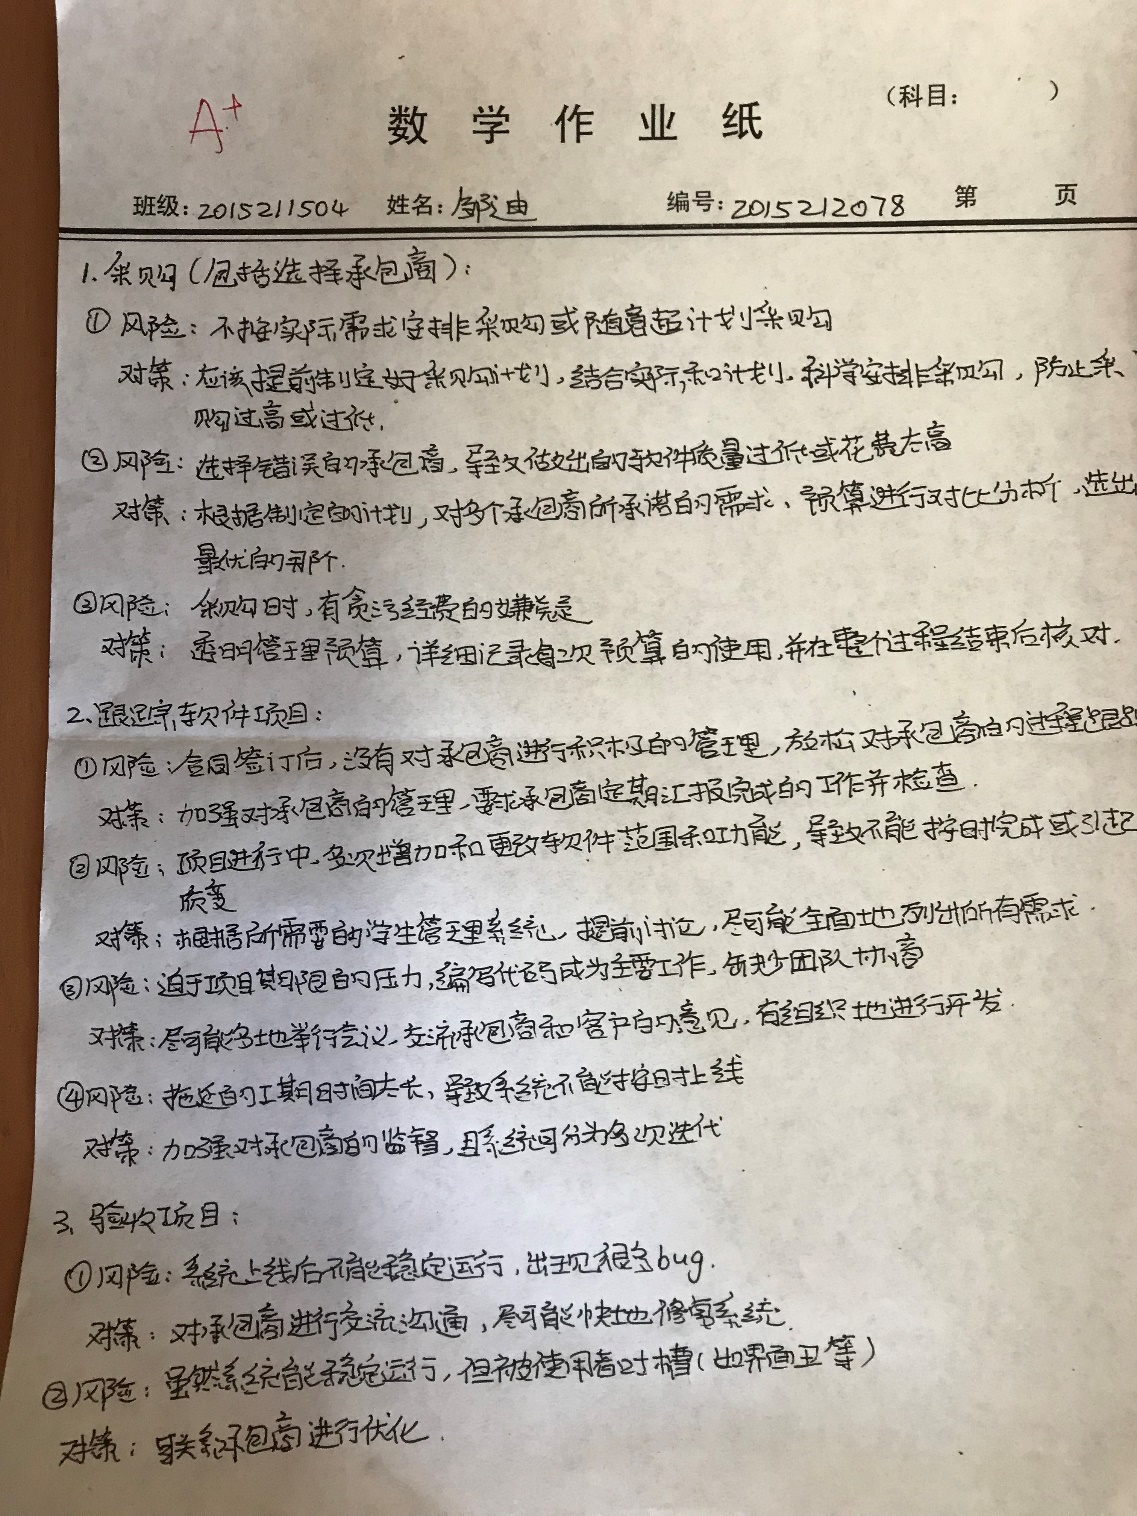 A+
(科目: )
数学作业纸
班级: 2015211504 姓名: 邹迪 编号: 2015212078 第 页
1. 采购(包括选择承包商):
① 风险: 不按实际需求安排采购或随意超计划采购
对策: 应该提前制定好采购计划, 结合实际和计划. 科学安排采购, 防止采
购过高或过低.
② 风险: 选择错误的承包商, 导致做出的软件质量过低或花费太高
对策: 根据制定的计划, 对多个承包商所承诺的需求、预算进行对比分析, 选出
最优的那个.
③ 风险: 采购时, 有贪污经费的嫌疑
对策: 透明管理预算, 详细记录每次预算的使用, 并在整个过程结束后核对.
2. 跟踪软件项目:
① 风险: 合同签订后, 没有对承包商进行积极的管理, 放松对承包商的过程跟踪
对策: 加强对承包商的管理, 要求承包商定期汇报完成的工作并检查.
② 风险: 项目进行中, 多次增加和更改软件范围和功能, 导致不能按时完成或引起
质变
对策: 根据所需要的学生管理系统, 提前讨论, 尽可能全面地列出所有需求.
③ 风险: 迫于项目期限的压力, 编写代码成为主要工作, 缺少团队协商
对策: 尽可能多地举行会议, 交流承包商和客户的意见, 有组织地进行开发.
④ 风险: 拖延的工期时间太长, 导致系统不能按时上线
对策: 加强对承包商的监督, 且系统可分为多次迭代
3. 验收项目:
① 风险: 系统上线后不能稳定运行, 出现很多bug.
对策: 对承包商进行交流沟通, 尽可能快地修复系统.
② 风险: 虽然系统能稳定运行, 但被使用者吐槽(如界面丑等)
对策: 联系承包商进行优化.